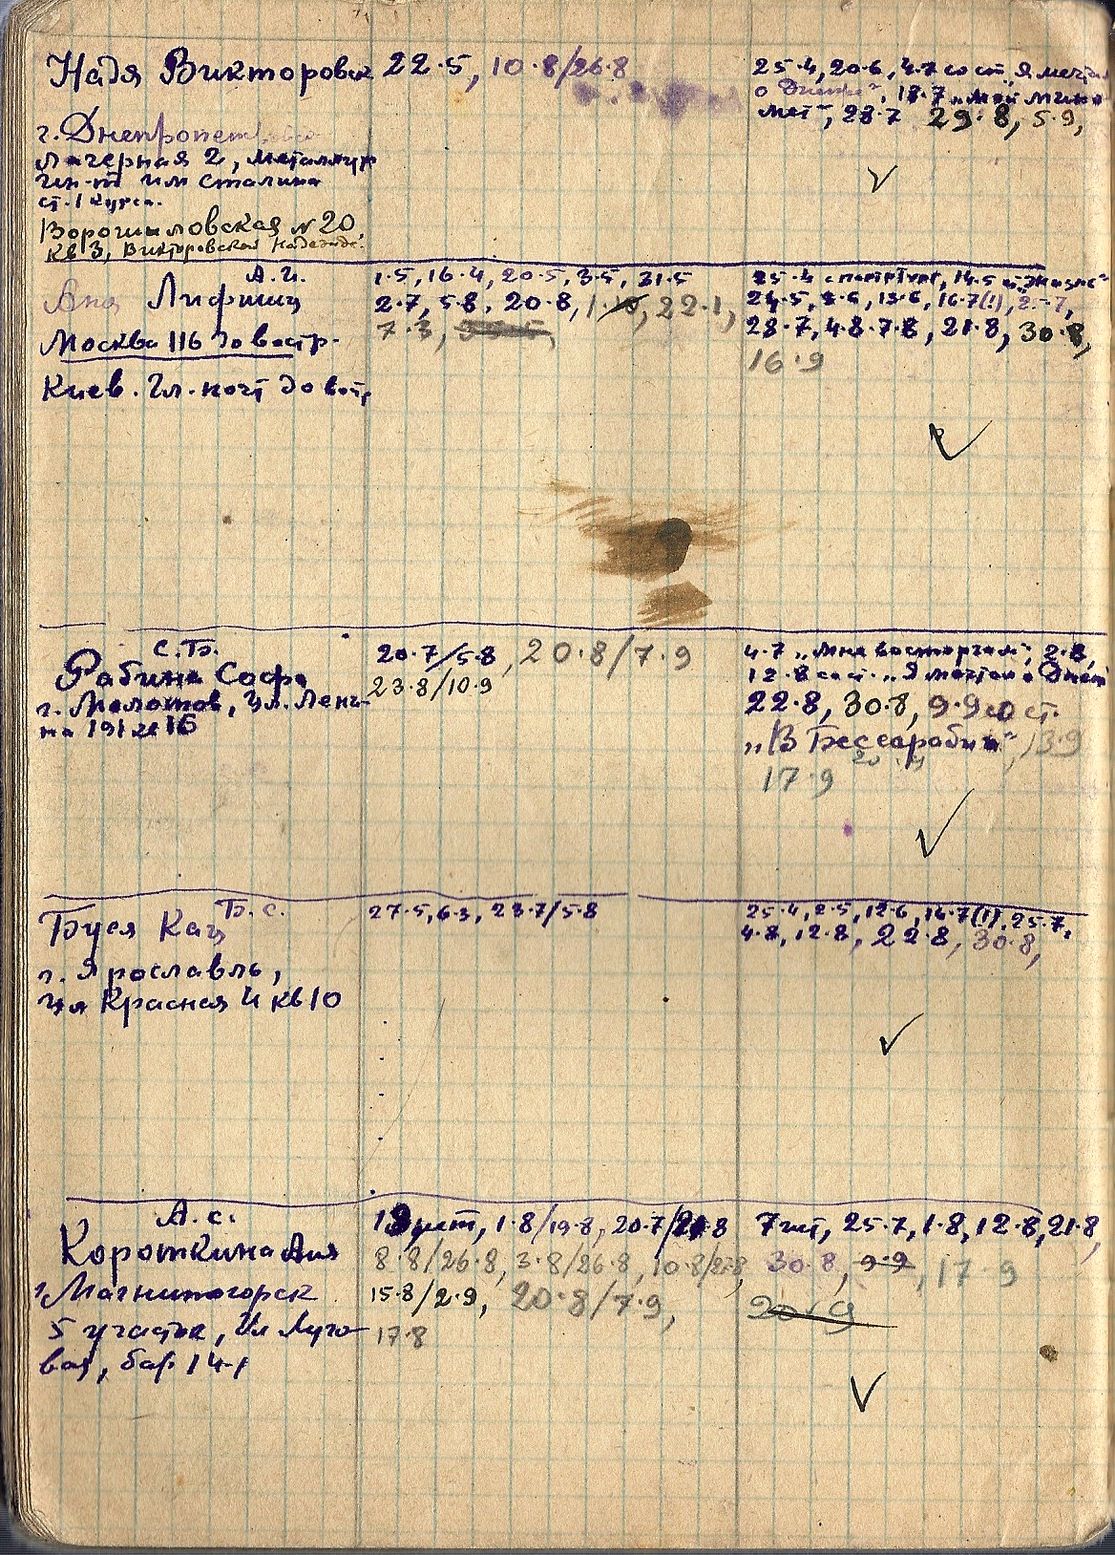 Надя Викторовск 22·5, 10·8/26·8
25·4, 20·6, 4·7 со ст. „Я мечтал
о Днепре", 18·7 „мой мино
мет", 28·7 29·8, 5·9,
г. Днепропет
Лагерная 2, металлур
ин-т им Сталина
ст. 1 курса.
Ворошиловская № 20,
кв 3, Викторовской Надежде.
А.И.
Аня Лифшиц
Москва 116 до востр.
Киев. Гл. почт до вост,
1·5, 16·4, 20·5, 3·5, 31·5
2·7, 5·8, 20·8, 1·10, 22·1,
7·3,
25·4 14·5 „Жизнь"
24·5, 8·6, 13·6, 16·7(!),
28·7, 4·8, 7·8, 21·8, 30·8,
16·9
С.Б.
Рабина Софа
г. Молотов, Ул. Лени-
на 191
20·7/5·8, 20·8/7·9
23·8/10·9
4·7 „Мне восторгам", 2·8,
12·8 со ст. „Я мечтал о Днепр
22·8, 30·8, 9·9 со ст.
„В Бессарабии", 13·9
17·9
Б.С.
Буся Кац
г. Ярославль,
ул Красная 4 кв 10
27·5, 6·3, 23·7/5·8
25·4, 2·5, 12·6, 16·7(!), 25·7,
4·8, 12·8, 22·8, 30·8,
А.С.
Короткина Аня
г Магнитогорск
5 участок, Ул Луго-
вая, бар 14
19 шт, 1·8/19·8, 20·7/21·8
8·8/26·8, 3·8/26·8, 10·8/27·8,
15·8/2·9, 20·8/7·9,
17·8
7 шт, 25·7, 1·8, 12·8, 21·8,
30·8, 9·9, 17·9
20·9